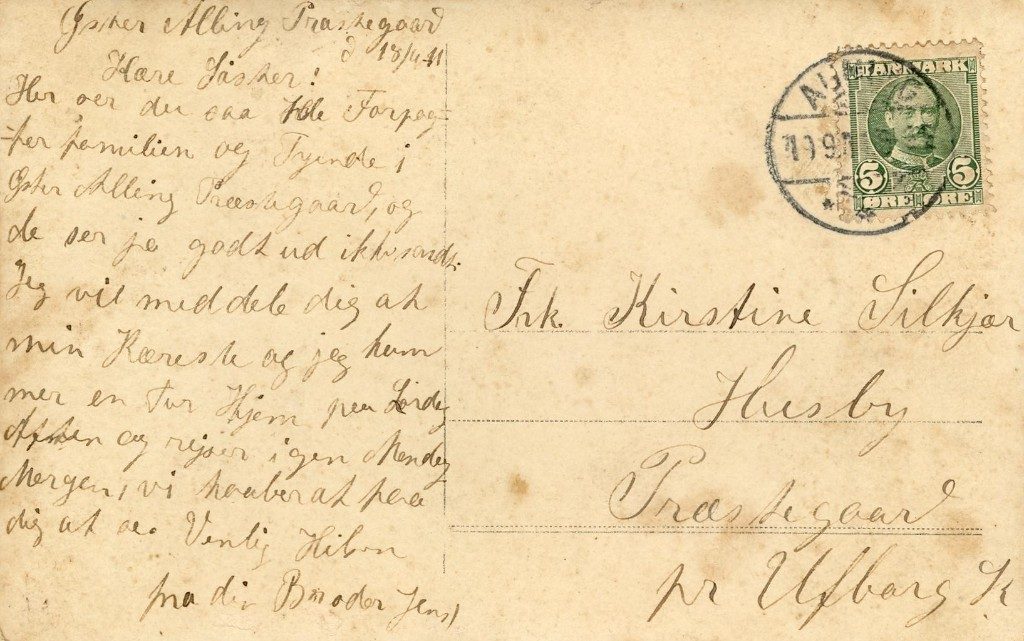 Øster Alling Præstegaard
d 18/4-11
Kære Søster!
Her ser du saa hele Forpag-
-ter familien og Tyende i
Øster Alling Præstegaard, og
de ser jo godt ud ikke, sandt.
Jeg vil meddele dig at
min Kæreste og jeg kom
mer en Tur Hjem paa Lørdag
Aften og rejser igen Mandag
Morgen, vi haaber at faa
dig at se. Venlig Hilsn
fra din Broder Jens
DANMARK
5 5
ØRE ØRE
Frk. Kirstine Silkjær
Husby
Præstegaard
pr Ulfborg K